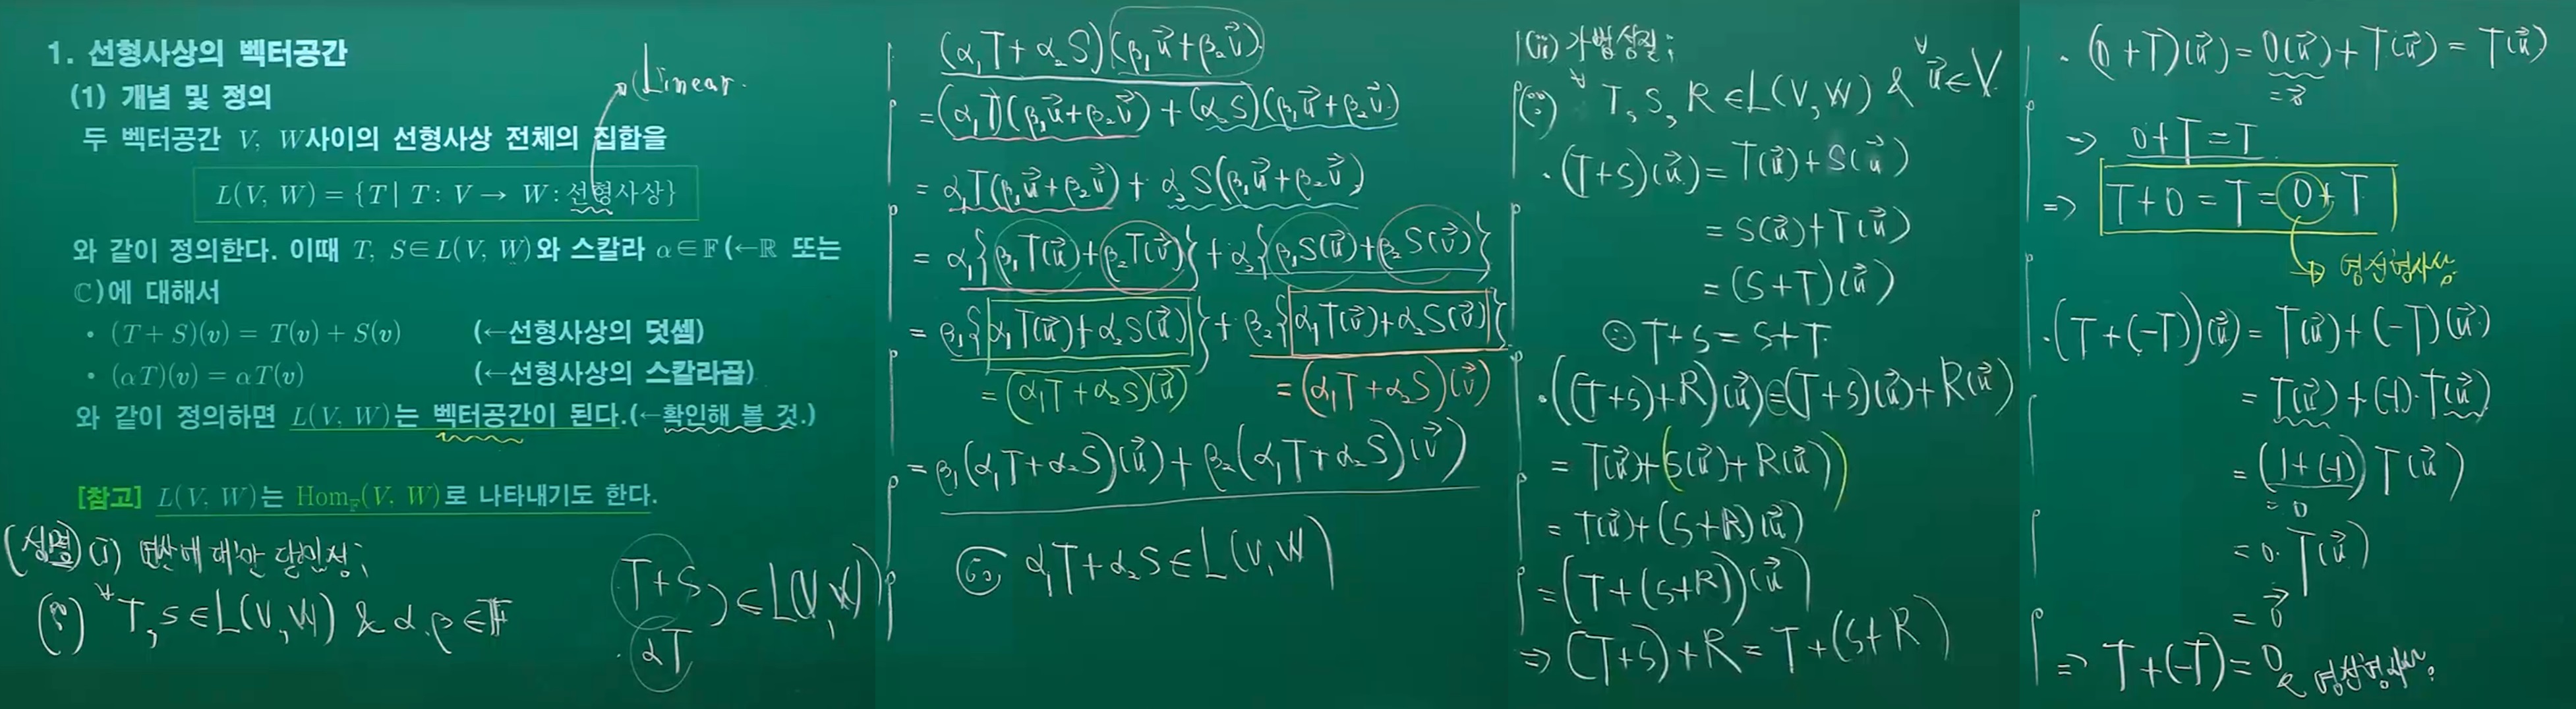 1. 선형사상의 벡터공간
(1) 개념 및 정의
두 벡터공간 V, W사이의 선형사상 전체의 집합을
Linear.
L(V, W) = {T | T: V → W: 선형사상}
와 같이 정의한다. 이때 T, S∈L(V, W)와 스칼라 α∈𝔽(←ℝ 또는
ℂ)에 대해서
• (T+S)(v) = T(v)+S(v) (←선형사상의 덧셈)
• (αT)(v) = αT(v) (←선형사상의 스칼라곱)
와 같이 정의하면 L(V, W)는 벡터공간이 된다.(←확인해 볼 것.)
[참고] L(V, W)는 Hom_𝔽(V, W)로 나타내기도 한다.
(설명) (i) 연산에 대한 닫힘성;
(∵) ∀T, S∈L(V, W) & α, β∈𝔽
T+S
αT
) ∈ L(V, W)
(α₁T+α₂S)(β₁u⃗+β₂v⃗)
= (α₁T)(β₁u⃗+β₂v⃗) + (α₂S)(β₁u⃗+β₂v⃗)
= α₁T(β₁u⃗+β₂v⃗) + α₂S(β₁u⃗+β₂v⃗)
= α₁{β₁T(u⃗)+β₂T(v⃗)} + α₂{β₁S(u⃗)+β₂S(v⃗)}
= β₁{α₁T(u⃗)+α₂S(u⃗)} + β₂{α₁T(v⃗)+α₂S(v⃗)}
= (α₁T+α₂S)(u⃗) = (α₁T+α₂S)(v⃗)
= β₁(α₁T+α₂S)(u⃗) + β₂(α₁T+α₂S)(v⃗)
∴ α₁T+α₂S∈L(V, W)
(ii) 가법성질;
(∵) ∀T, S, R∈L(V, W) & ∀u⃗∈V
· (T+S)(u⃗) = T(u⃗)+S(u⃗)
= S(u⃗)+T(u⃗)
= (S+T)(u⃗)
∴ T+S = S+T
· ((T+S)+R)(u⃗) = (T+S)(u⃗)+R(u⃗)
= T(u⃗)+(S(u⃗)+R(u⃗))
= T(u⃗)+(S+R)(u⃗)
= (T+(S+R))(u⃗)
⇒ (T+S)+R = T+(S+R)
· (0+T)(u⃗) = 0(u⃗)+T(u⃗) = T(u⃗)
= 0⃗
⇒ 0+T = T
⇒ T+0 = T = 0+T
영선형사상
· (T+(-T))(u⃗) = T(u⃗)+(-T)(u⃗)
= T(u⃗)+(-1)·T(u⃗)
= (1+(-1))T(u⃗)
= 0
= 0·T(u⃗)
= 0⃗
⇒ T+(-T) = 0
영선형사상